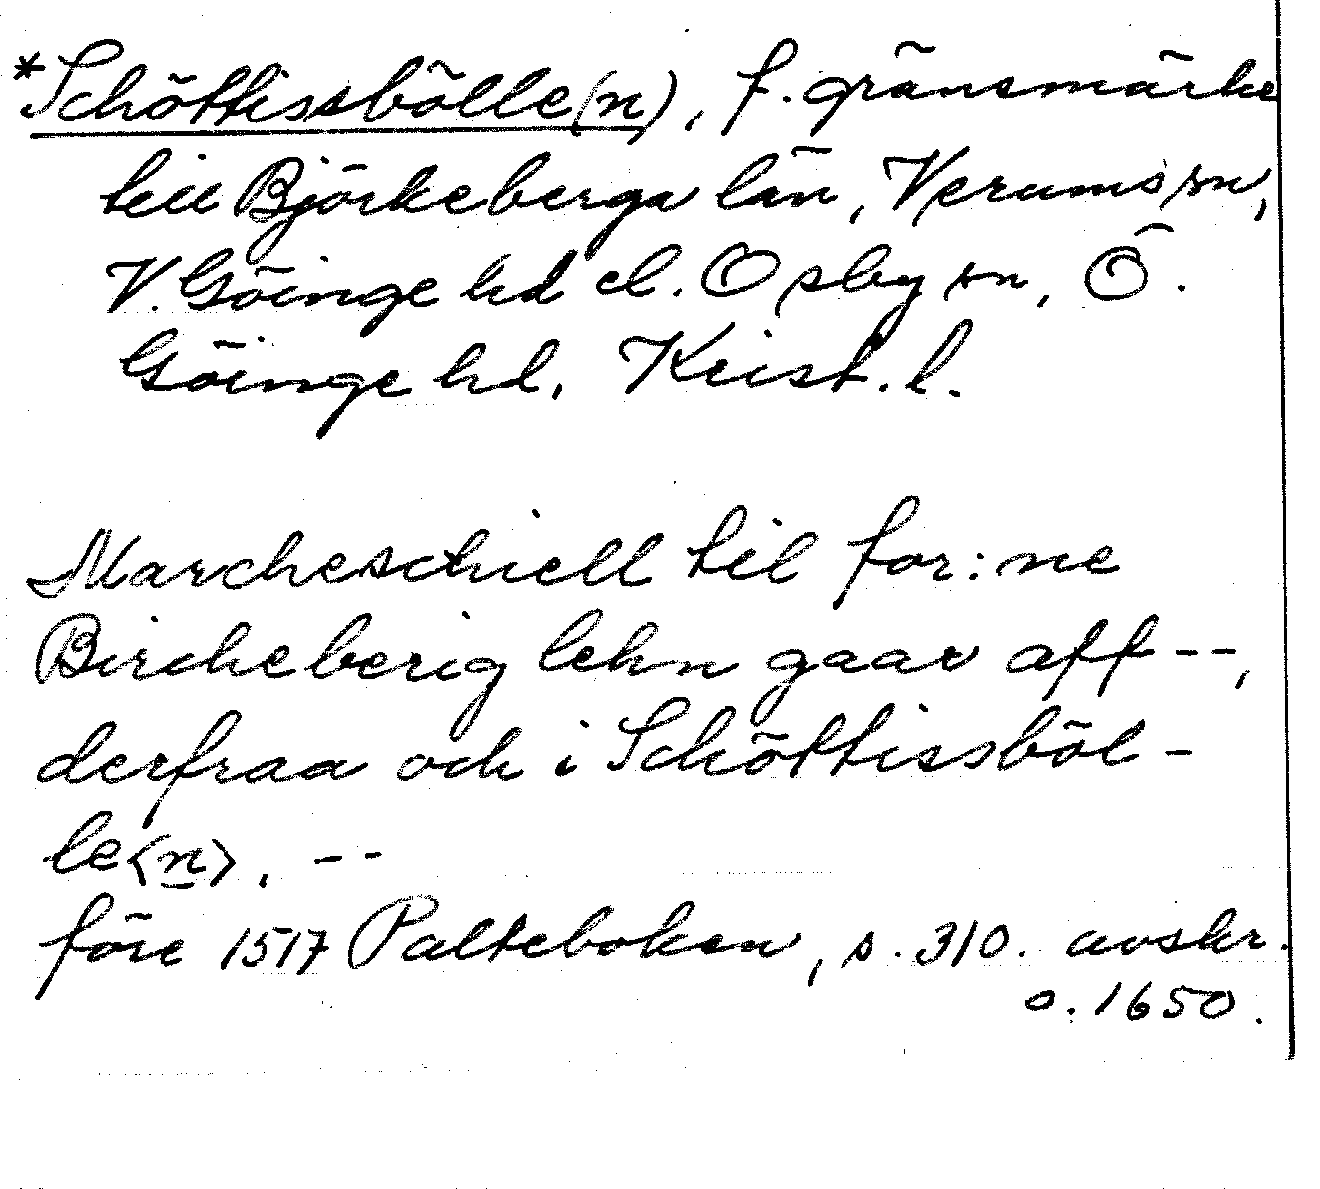 *Schöttissbölle(n), f. gränsmärke
till Björkeberga län, Verums sn,
V. Göinge hd el. Osby sn, Ö.
Göinge hd, Krist. l.
Marcheschiell til for:ne
Bircheberig lehn gaar aff --,
derfraa och i Schöttissböl-
le<n>, --
före 1517 Palteboken, s. 310. avskr.
o. 1650.